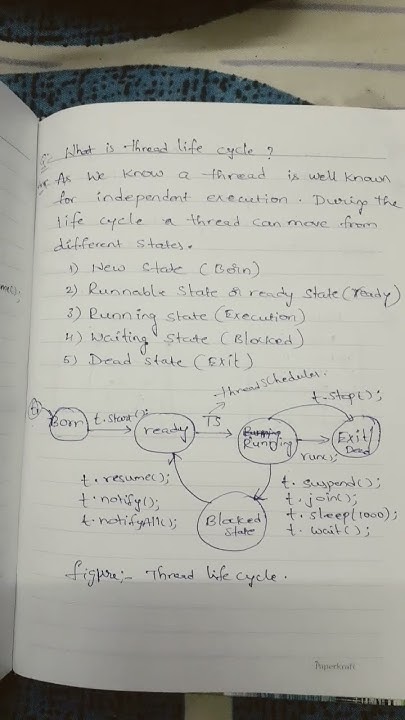 Q:- What is thread life cycle ?
Ans: As we know a thread is well known
for independent execution. During the
life cycle a thread can move from
different states.
1) New State (Born)
2) Runnable State or ready State (ready)
3) Running State (Execution)
4) Waiting State (Blocked)
5) Dead State (Exit)
threadscheduler.
t.stop();
Born
t.start();
ready
TS
Running
Exit/
Dead
run();
t.resume();
t.notify();
t.notifyAll();
Blocked
State
t. suspend();
t. join();
t. sleep(1000);
t. wait();
figure:- Thread life cycle.
Paperkraft